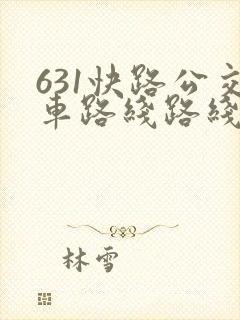 631快路公交
車路綫路綫
林雪